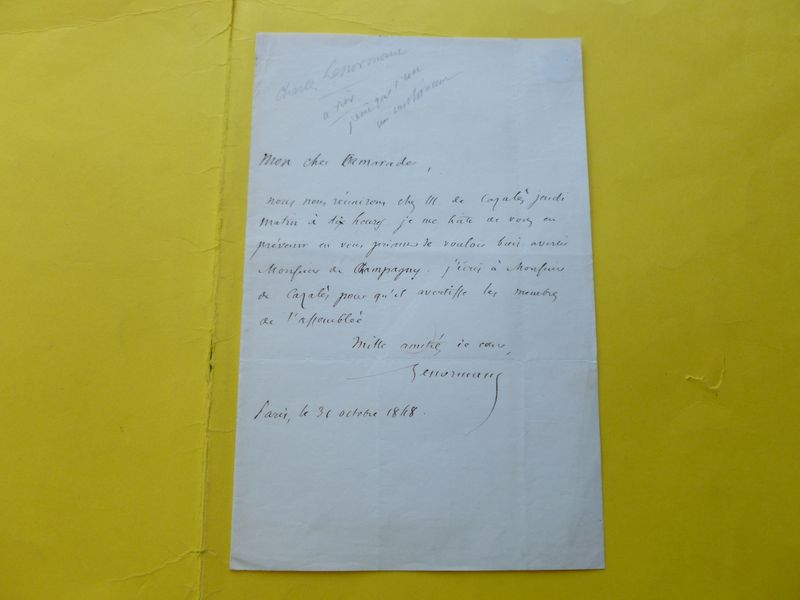 Charles Lenormant
Mon cher Camarade,
nous nous réunirons chez M de Cazalès jeudi
matin à dix heures je me hâte de vous en
prévenir en vous priant de vouloir bien avertir
Monsieur de Champagny. j'écris à Monsieur
de Cazalès pour qu'il avertisse les membres
de l'assemblée
Mille amitiés de cœur,
Lenormant
Paris, le 31 octobre 1848.